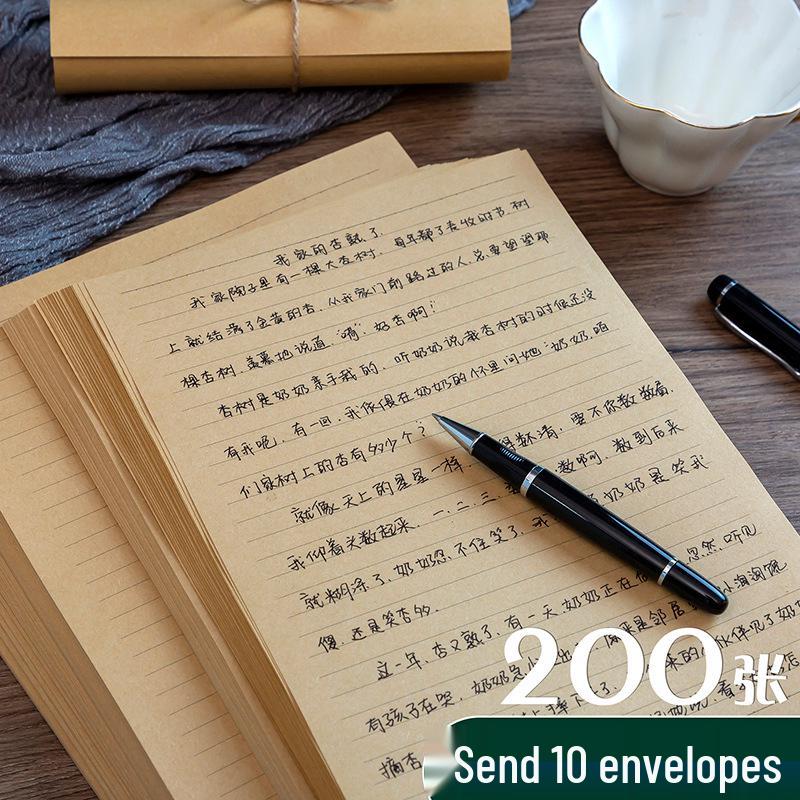 我家的杏熟了
我家院子里有一棵大杏树. 每年都了麦收时节. 树
上就结满了金黄的杏. 从我家门前路过的人. 总要望望那
棵杏树. 羡慕地说道 “嗬! 好杏啊!”
杏树是奶奶亲手栽的. 听奶奶说. 栽杏树的时候还没
有我呢. 有一回. 我依偎在奶奶的怀里问她: “奶奶. 咱
们家树上的杏有多少个?
就像天上的星星一样. 得数清. 要不你数数看.
我仰着头数起来. 一. 二. 三. 数啊. 数到后来
就糊涂了. 奶奶忍不住笑了. 我 奶奶是笑我
傻. 还是笑杏多.
这一年. 杏又熟了. 有一天. 奶奶正在 忽然. 听见
有孩子在哭. 奶奶急 出 原来是邻居 小淘淘
摔下了
摘杏
200张
Send 10 envelopes